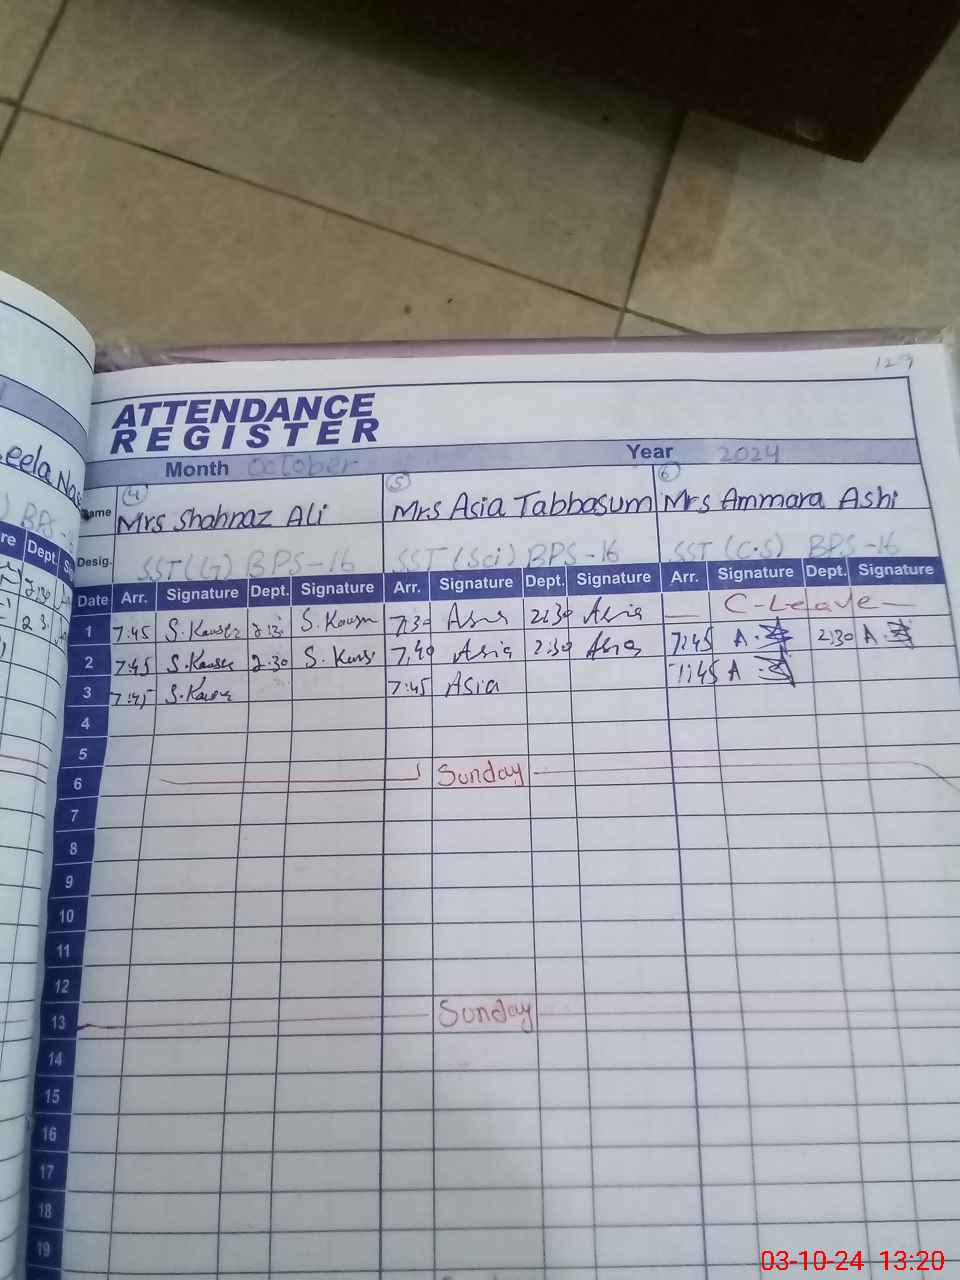 129
ATTENDANCE
REGISTER
Month October Year 2024
eela Nas
Name (4) Mrs Shahnaz Ali (5) Mrs Asia Tabbasum (6) Mrs Ammara Ashi
BPS-
Desig. SST(G) BPS-16 SST (Sci) BPS-16 SST (C.S) BPS-16
re Dept.
Date Arr. Signature Dept. Signature Arr. Signature Dept. Signature Arr. Signature Dept. Signature
1 7:45 S.Kauser 2:30 7:30 Asia 2:30 Asia C-Leave
2 7:45 S.Kauser 2:30 7:40 Asia 2:30 Asia 7:45 A. 2:30 A.
3 7:45 7:45 Asia 7:45 A.
4
5
6 Sunday
7
8
9
10
11
12
13 Sunday
14
15
16
17
18
19
03-10-24 13:20